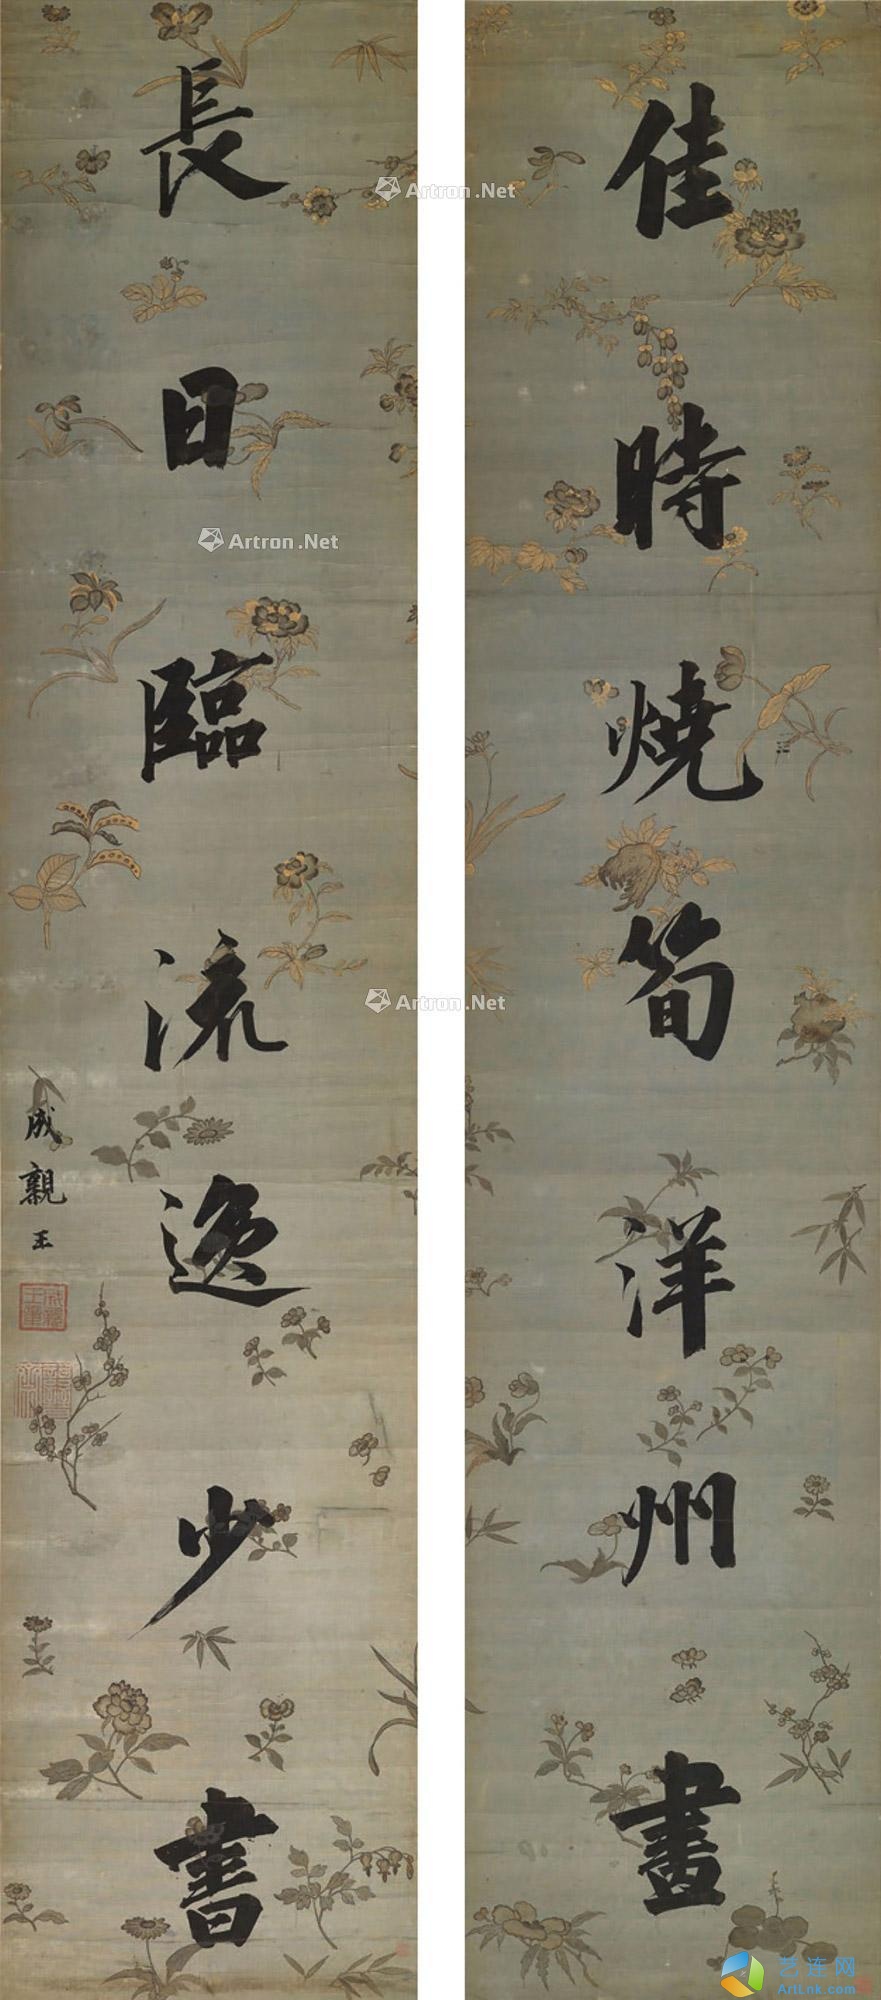 佳時燒筍洋州畫
長日臨流逸少書
成親王
Artron.Net
Artron.Net
Artron.Net
艺连网
ArtLnk.com